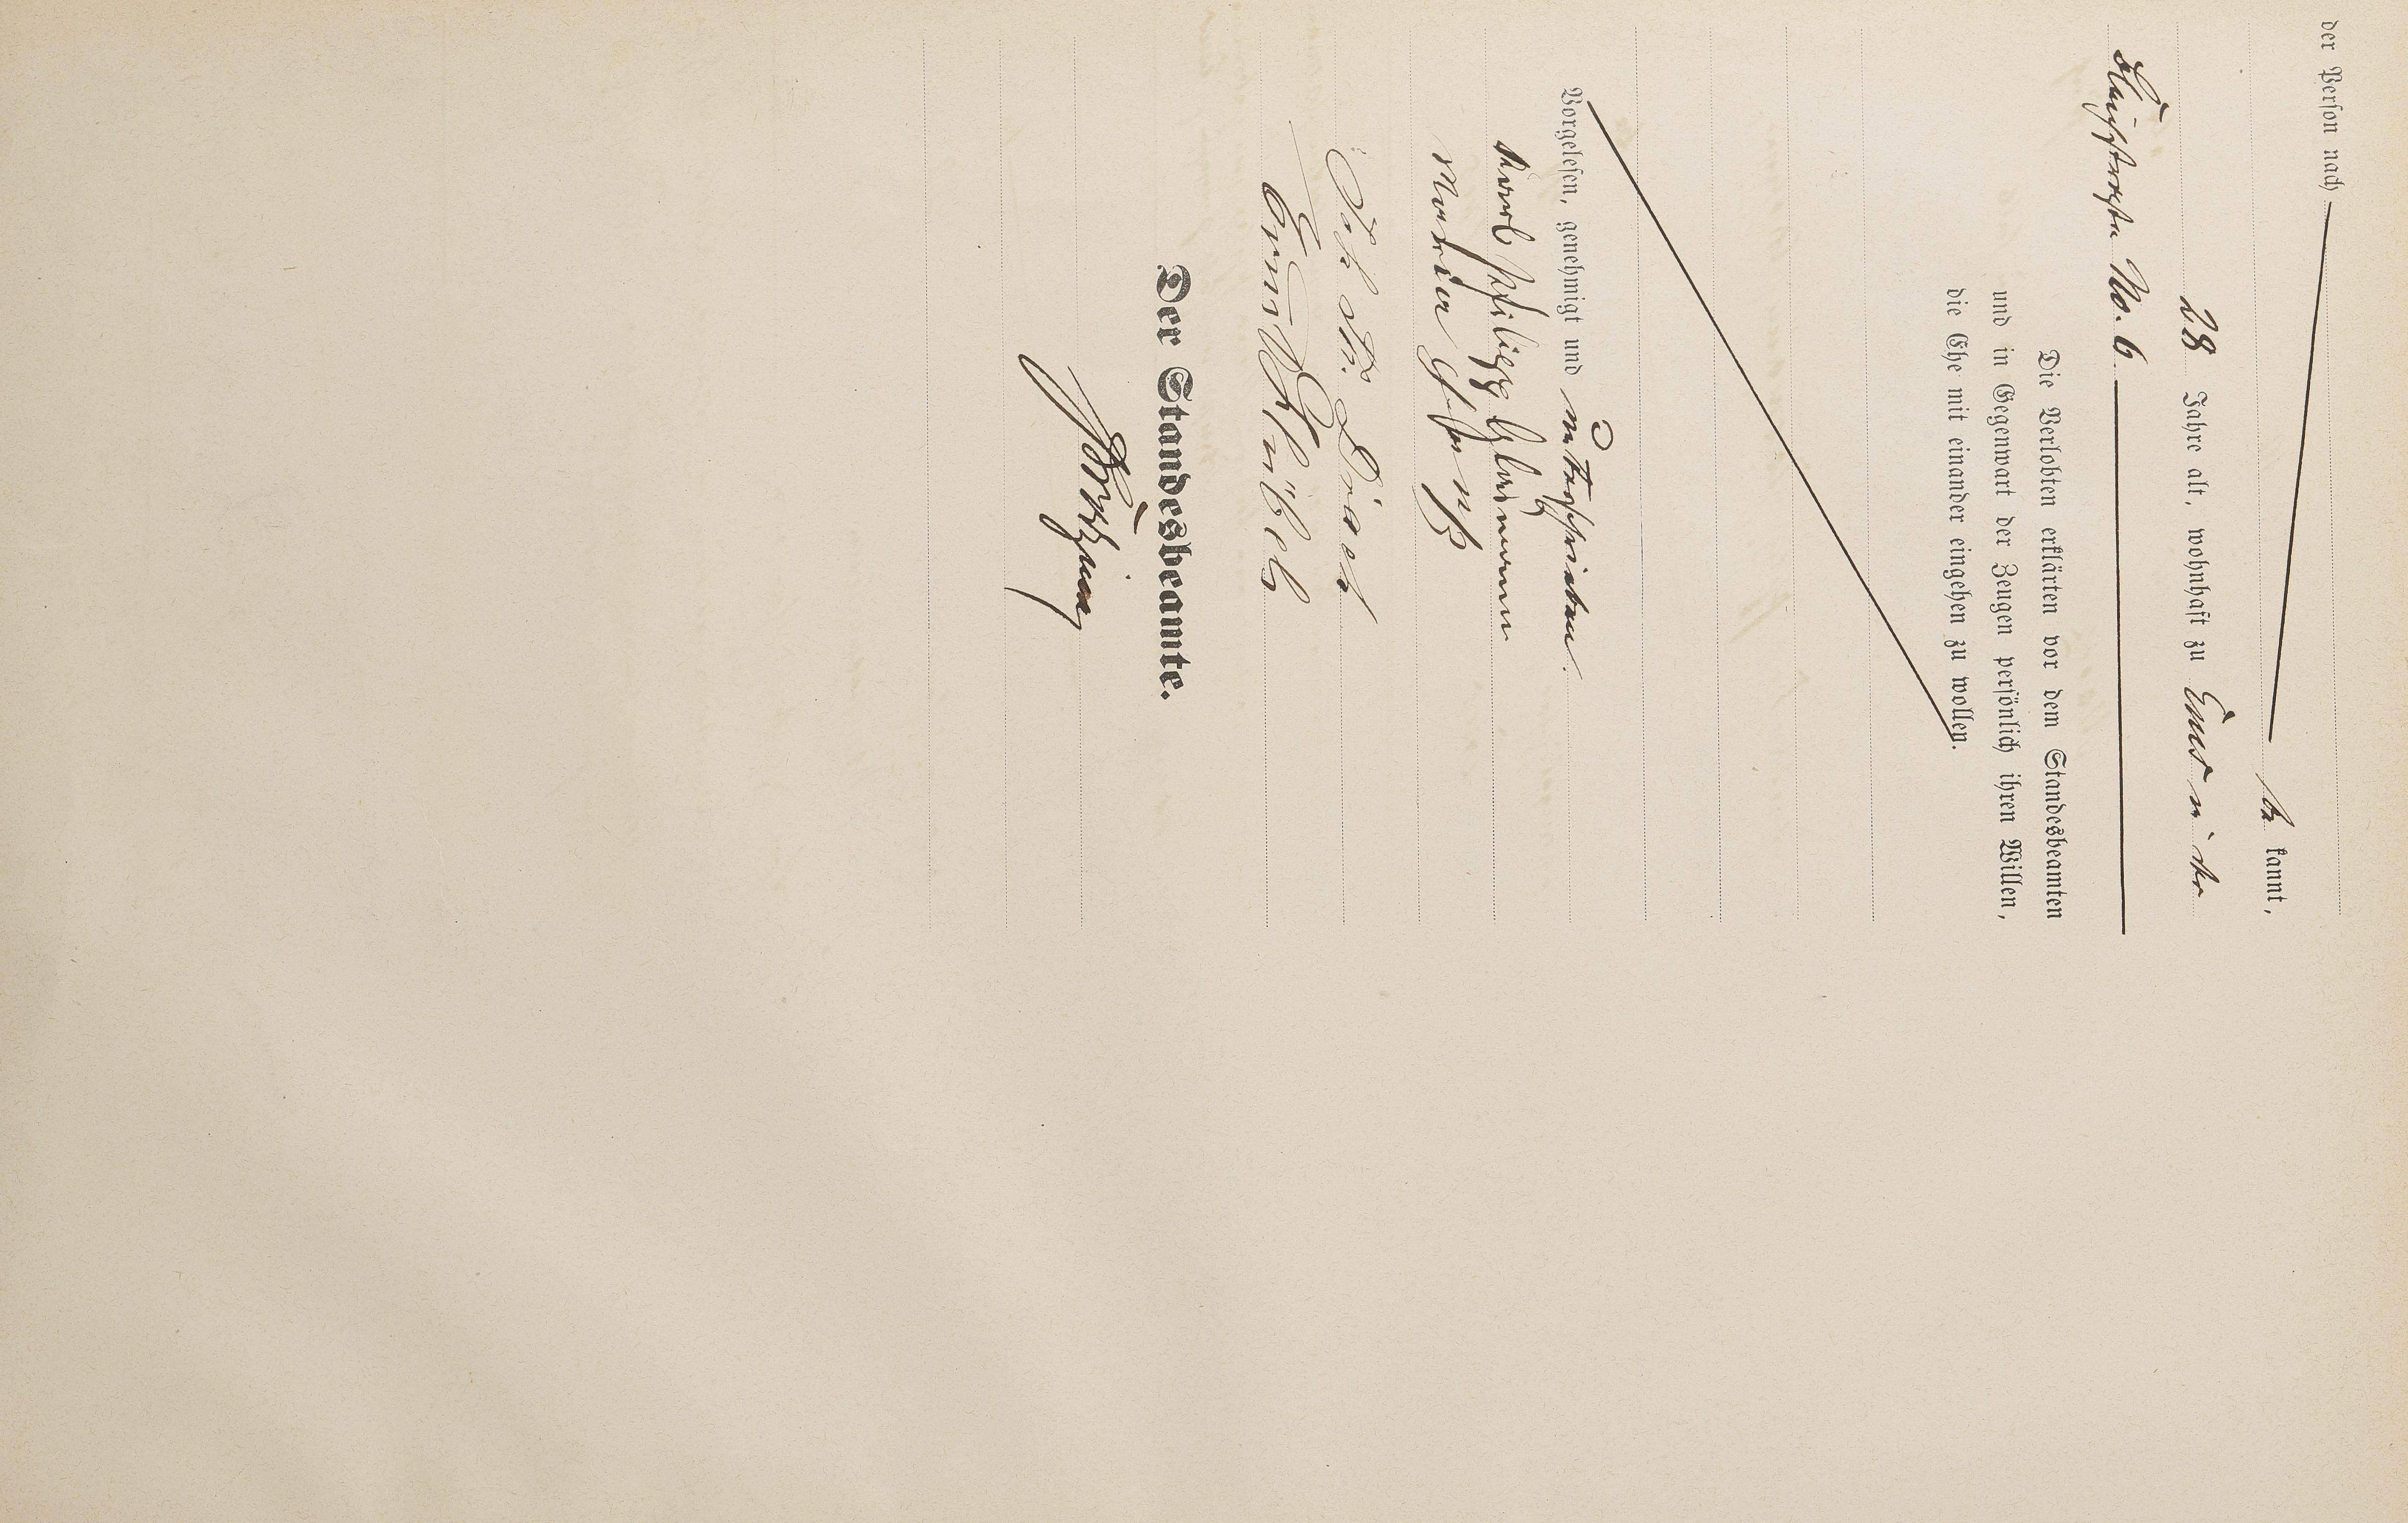 der Person nach
be kannt,
28 Jahre alt, wohnhaft zu
No. 6.
Die Verlobten erklärten vor dem Standesbeamten
und in Gegenwart der Zeugen persönlich ihren Willen,
die Ehe mit einander eingehen zu wollen.
Vorgelesen, genehmigt und unterschrieben.
Karl Philipp
Maria
Joh
Der Standesbeamte.